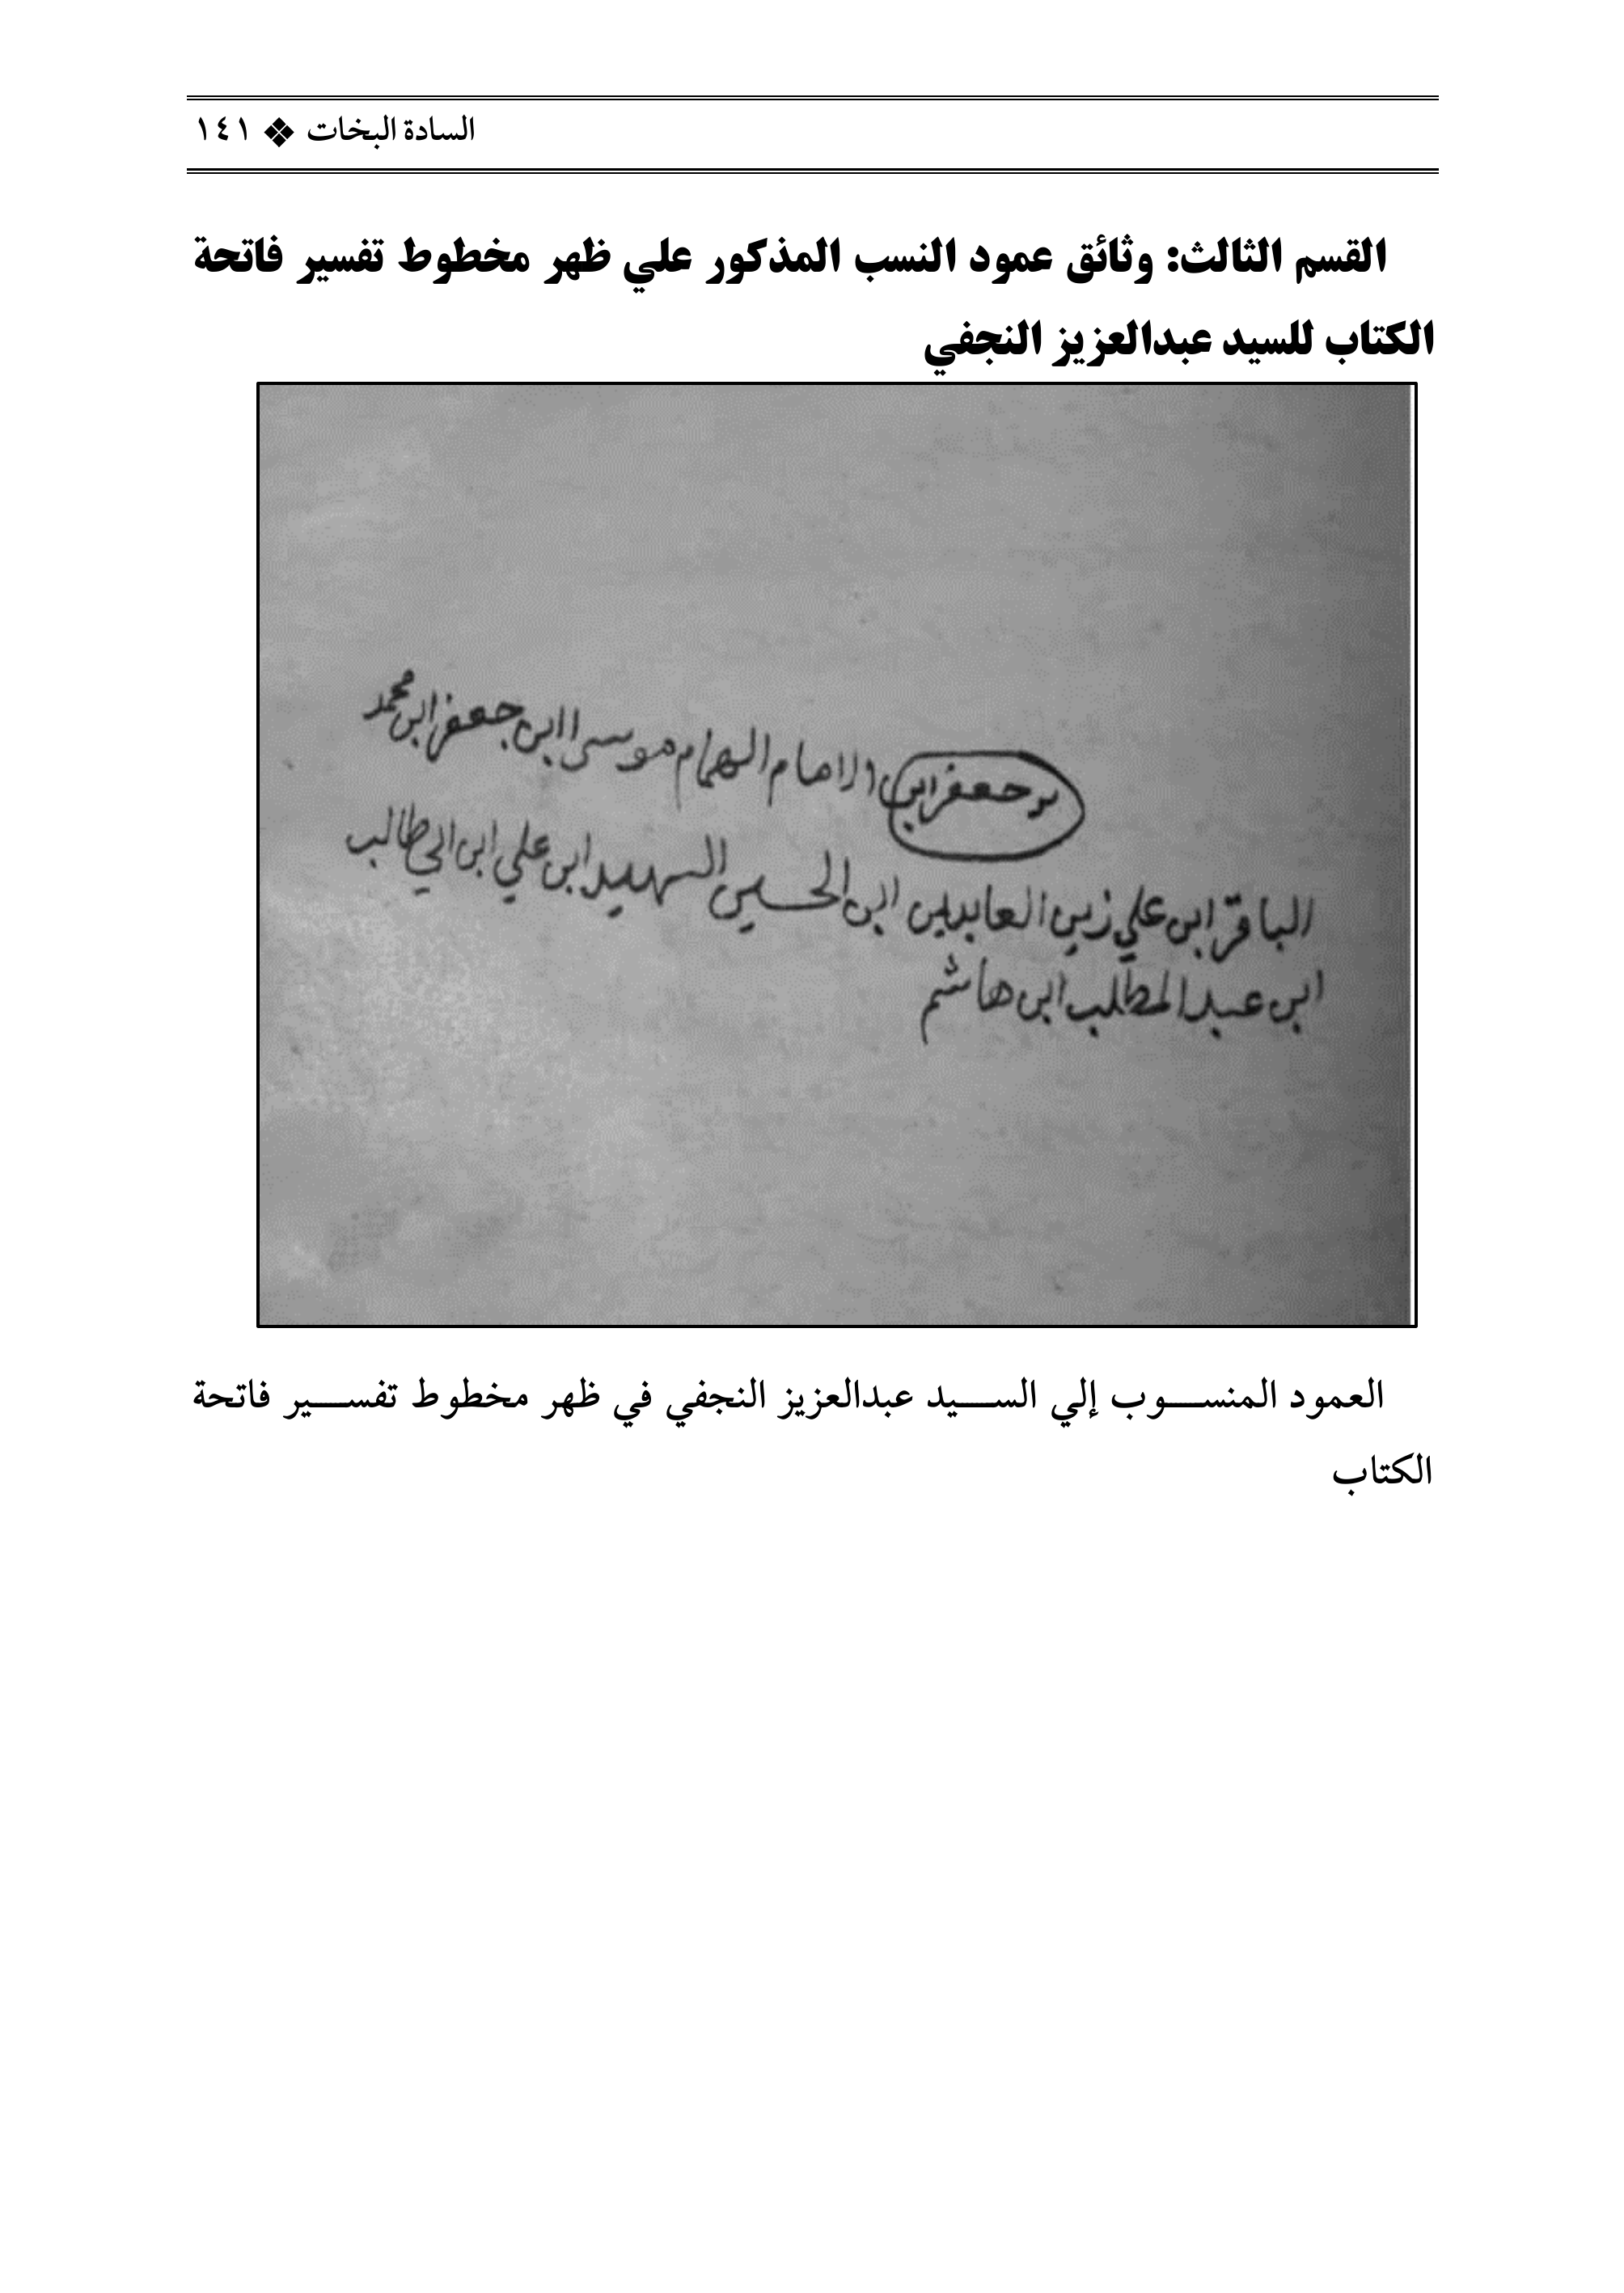 السادة البخات ❖ ١٤١
القسم الثالث: وثائق عمود النسب المذكور علي ظهر مخطوط تفسير فاتحة
الكتاب للسيد عبدالعزيز النجفي
جعفر ابن الامام الهمام موسى ابن جعفر ابن محمد
الباقر ابن علي زين العابدين ابن الحسين الشهيد ابن علي ابن ابي طالب
ابن عبد المطلب ابن هاشم
العمود المنسوب إلي السيد عبدالعزيز النجفي في ظهر مخطوط تفسير فاتحة
الكتاب